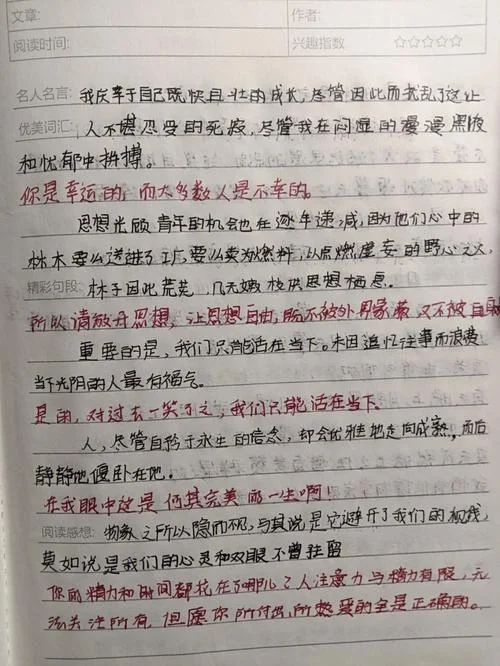 文章: 作者:
阅读时间: 兴趣指数 ☆☆☆☆☆
名人名言: 我庆幸于自己既快且壮的成长,尽管因此而扰乱了这让
优美词汇: 人不堪忍受的死寂,尽管我在闷湿的漫漫黑夜
和忧郁中拼搏。
你是幸运的,而大多数人是不幸的。
思想光顾青年的机会也在逐年递减,因为他们心中的
林木要么送进了工厂,要么卖为燃料,以点燃虚妄的野心之火,
精彩句段: 林子因此荒芜,几无嫩枝供思想栖息。
所以请敞开思想,让思想自由,既不被外界蒙蔽,又不被自
重要的是,我们只能活在当下。未因追忆往事而浪费
当下光阴的人最有福气。
是的,对过去一笑了之,我们只能活在当下。
人,尽管自矜于永生的信念,却会优雅地走向成熟,而后
静静地偃卧在地。
在我眼中这是何其完美的一生啊!
阅读感想: 物象之所以隐而不现,与其说是它避开了我们的视线,
莫如说是我们的心灵和双眼不曾驻留
你的精力和时间都花在了哪儿了人注意力与精力有限,无
法关注所有,但愿你所付出,所热爱的全是正确的。